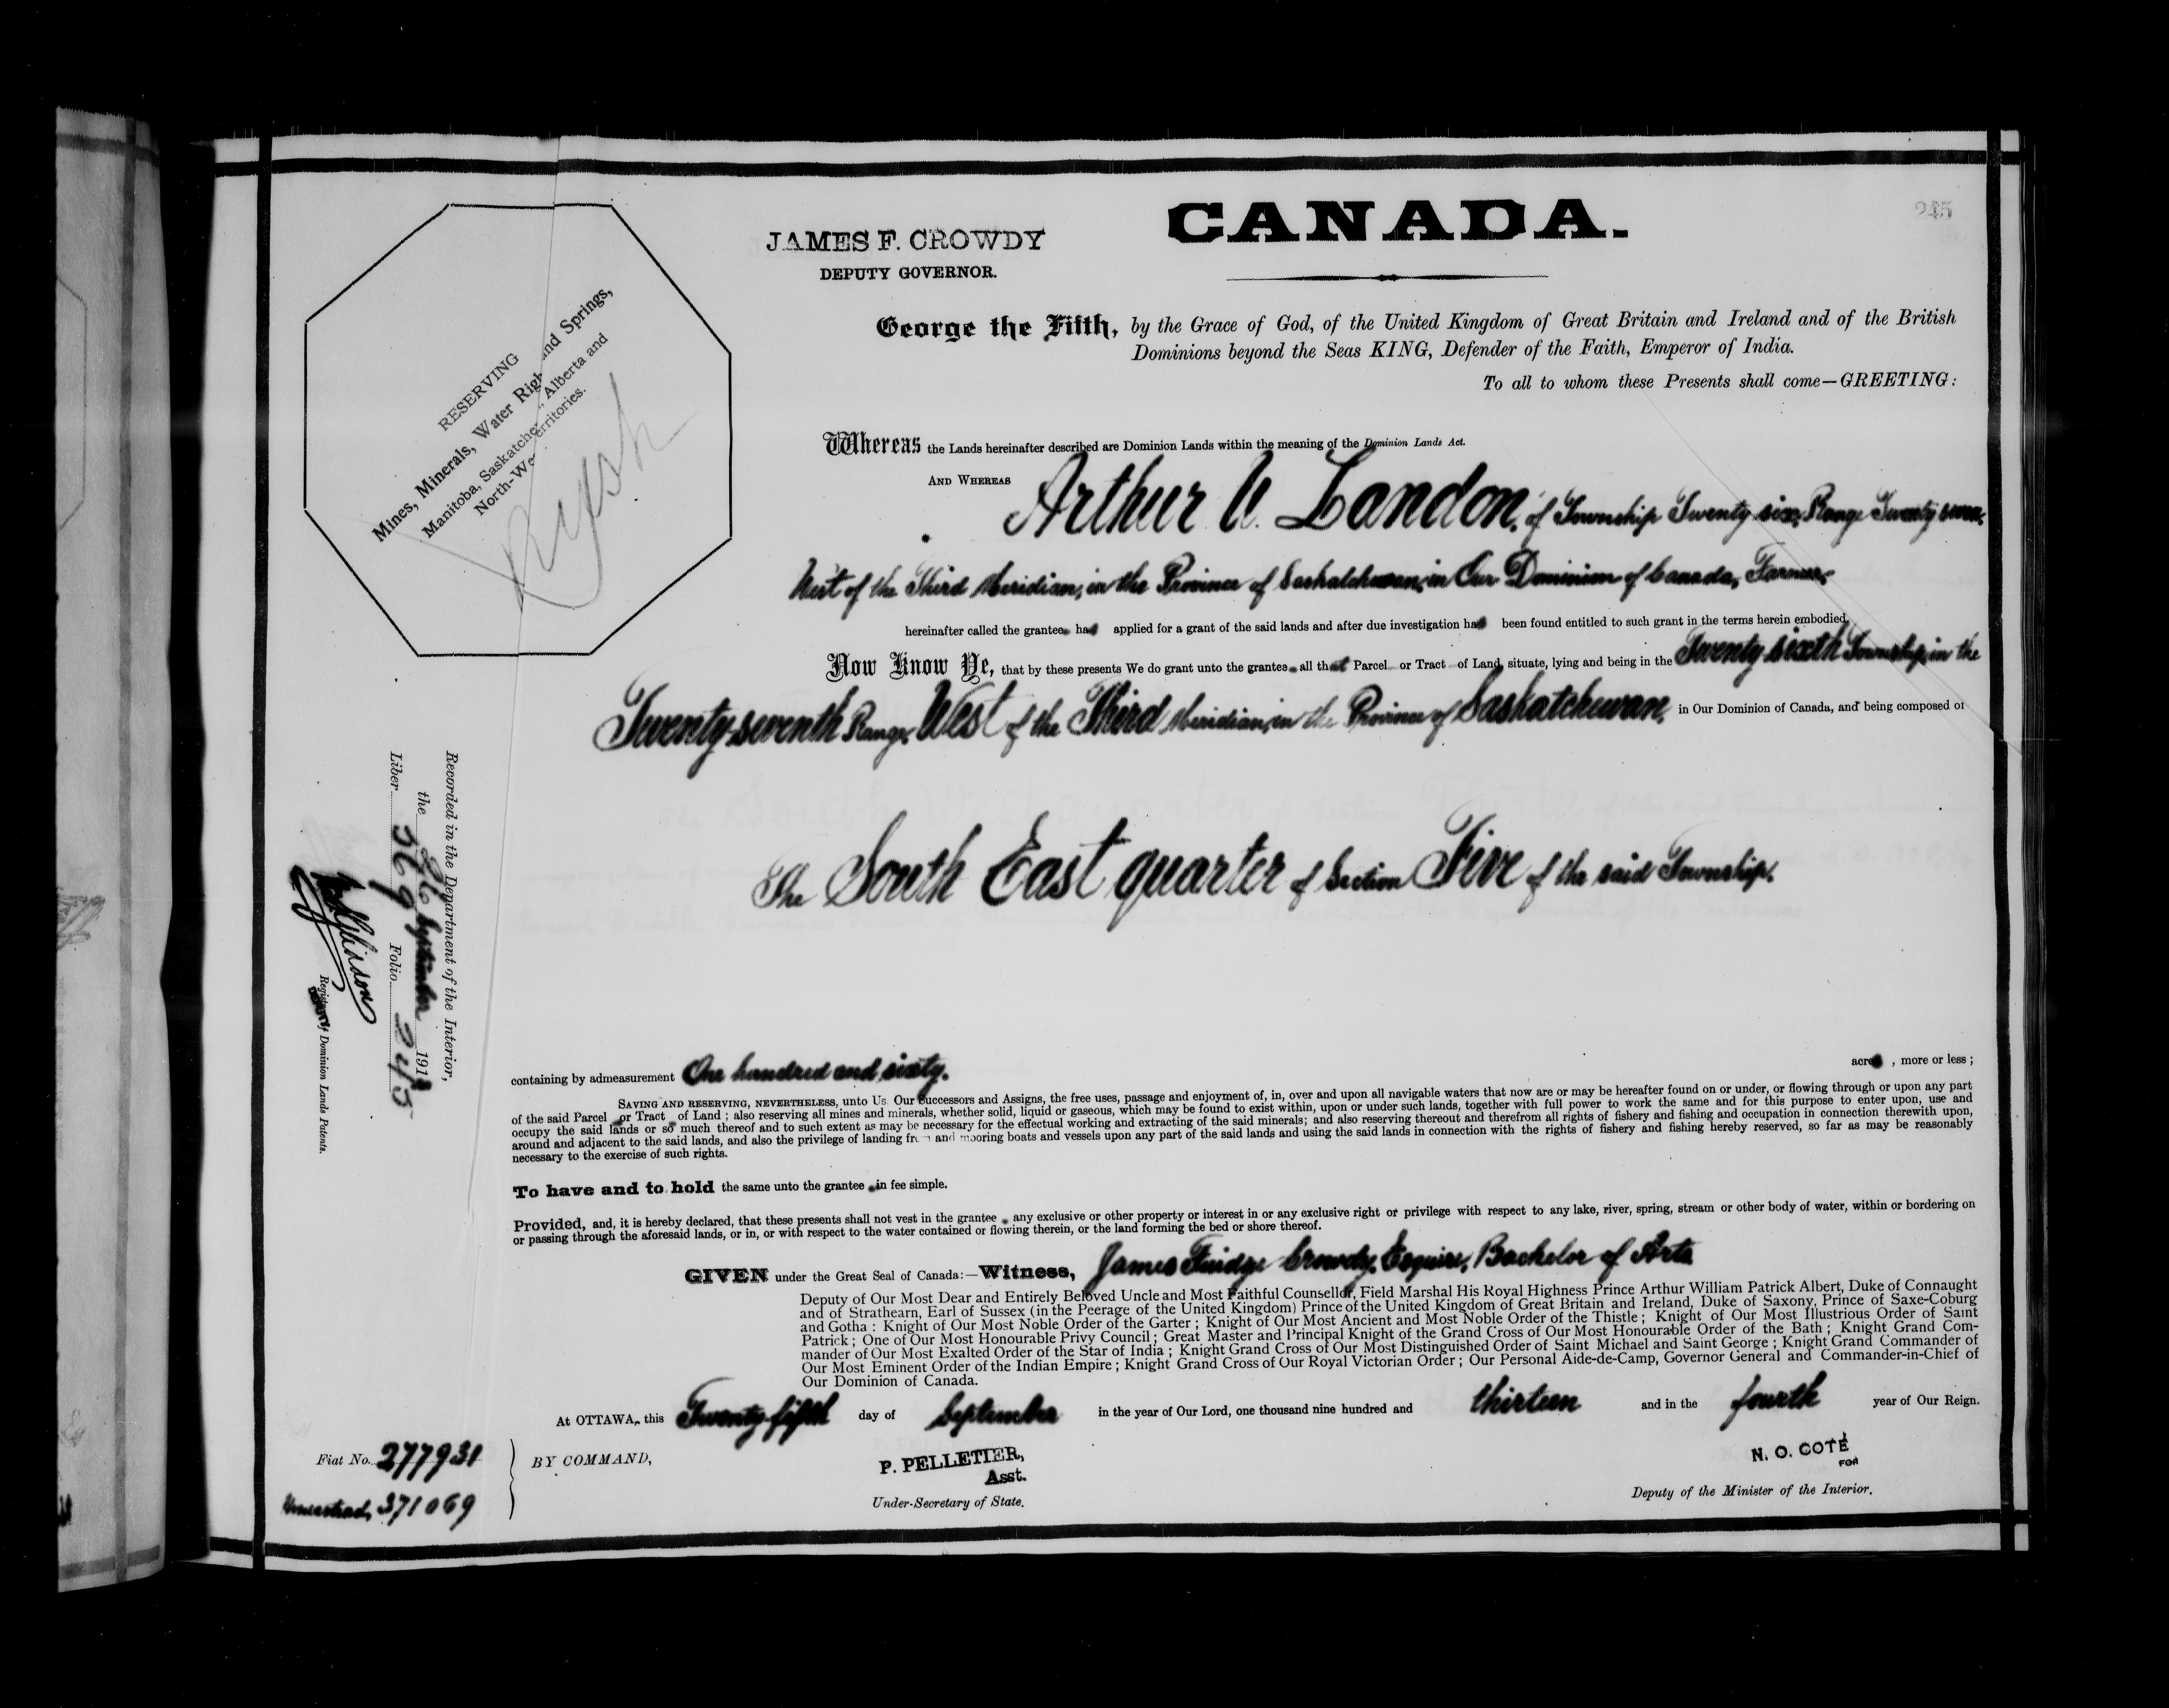 245
CANADA.
JAMES F. CROWDY
DEPUTY GOVERNOR.
RESERVING
Mines, Minerals, Water Righ and Springs,
Manitoba, Saskatche , Alberta and
North-We erritories.
George the Fifth, by the Grace of God, of the United Kingdom of Great Britain and Ireland and of the British
Dominions beyond the Seas KING, Defender of the Faith, Emperor of India.
To all to whom these Presents shall come—GREETING:
Whereas the Lands hereinafter described are Dominion Lands within the meaning of the Dominion Lands Act.
AND WHEREAS Arthur V. Landon, of Township Twenty-six, Range Twenty-seven,
West of the Third Meridian, in the Province of Saskatchewan, in Our Dominion of Canada, Farmer,
hereinafter called the grantee has applied for a grant of the said lands and after due investigation has been found entitled to such grant in the terms herein embodied,
Now Know Ye, that by these presents We do grant unto the grantee all that Parcel or Tract of Land, situate, lying and being in the Twenty-sixth Township, in the
Twenty-seventh Range, West of the Third Meridian, in the Province of Saskatchewan, in Our Dominion of Canada, and being composed of
The South East quarter of Section Five of the said Township.
Recorded in the Department of the Interior,
the 26 September 1913
Liber 369 Folio 245
Registrar of Dominion Lands Patents.
containing by admeasurement One hundred and sixty. acres, more or less;
SAVING AND RESERVING, NEVERTHELESS, unto Us. Our Successors and Assigns, the free uses, passage and enjoyment of, in, over and upon all navigable waters that now are or may be hereafter found on or under, or flowing through or upon any part
of the said Parcel or Tract of Land; also reserving all mines and minerals, whether solid, liquid or gaseous, which may be found to exist within, upon or under such lands, together with full power to work the same and for this purpose to enter upon, use and
occupy the said lands or so much thereof and to such extent as may be necessary for the effectual working and extracting of the said minerals; and also reserving thereout and therefrom all rights of fishery and fishing and occupation in connection therewith upon,
around and adjacent to the said lands, and also the privilege of landing from and mooring boats and vessels upon any part of the said lands and using the said lands in connection with the rights of fishery and fishing hereby reserved, so far as may be reasonably
necessary to the exercise of such rights.
To have and to hold the same unto the grantee in fee simple.
Provided, and, it is hereby declared, that these presents shall not vest in the grantee any exclusive or other property or interest in or any exclusive right or privilege with respect to any lake, river, spring, stream or other body of water, within or bordering on
or passing through the aforesaid lands, or in, or with respect to the water contained or flowing therein, or the land forming the bed or shore thereof.
GIVEN under the Great Seal of Canada:—Witness, James Fuidge Crowdy, Esquire, Bachelor of Arts
Deputy of Our Most Dear and Entirely Beloved Uncle and Most Faithful Counsellor, Field Marshal His Royal Highness Prince Arthur William Patrick Albert, Duke of Connaught
and of Strathearn, Earl of Sussex (in the Peerage of the United Kingdom) Prince of the United Kingdom of Great Britain and Ireland, Duke of Saxony, Prince of Saxe-Coburg
and Gotha: Knight of Our Most Noble Order of the Garter; Knight of Our Most Ancient and Most Noble Order of the Thistle; Knight of Our Most Illustrious Order of Saint
Patrick; One of Our Most Honourable Privy Council; Great Master and Principal Knight of the Grand Cross of Our Most Honourable Order of the Bath; Knight Grand Com-
mander of Our Most Exalted Order of the Star of India; Knight Grand Cross of Our Most Distinguished Order of Saint Michael and Saint George; Knight Grand Commander of
Our Most Eminent Order of the Indian Empire; Knight Grand Cross of Our Royal Victorian Order; Our Personal Aide-de-Camp, Governor General and Commander-in-Chief of
Our Dominion of Canada.
At OTTAWA, this Twenty-fifth day of September in the year of Our Lord, one thousand nine hundred and thirteen and in the fourth year of Our Reign.
Fiat No. 277931
Homestead, 371069
BY COMMAND,
P. PELLETIER,
Asst.
Under-Secretary of State.
N. O. COTÉ
FOR
Deputy of the Minister of the Interior.